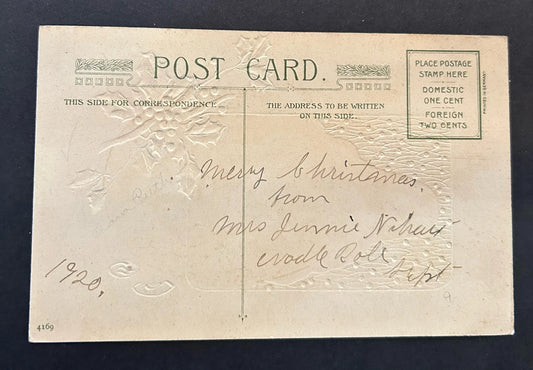 POST CARD.
THIS SIDE FOR CORRESPONDENCE.
THE ADDRESS TO BE WRITTEN
ON THIS SIDE.
PLACE POSTAGE
STAMP HERE
DOMESTIC
ONE CENT
FOREIGN
TWO CENTS
PRINTED IN GERMANY
Merry Christmas.
from
Mrs Jennie
Cradle Roll
Dept
1920,
4169
9